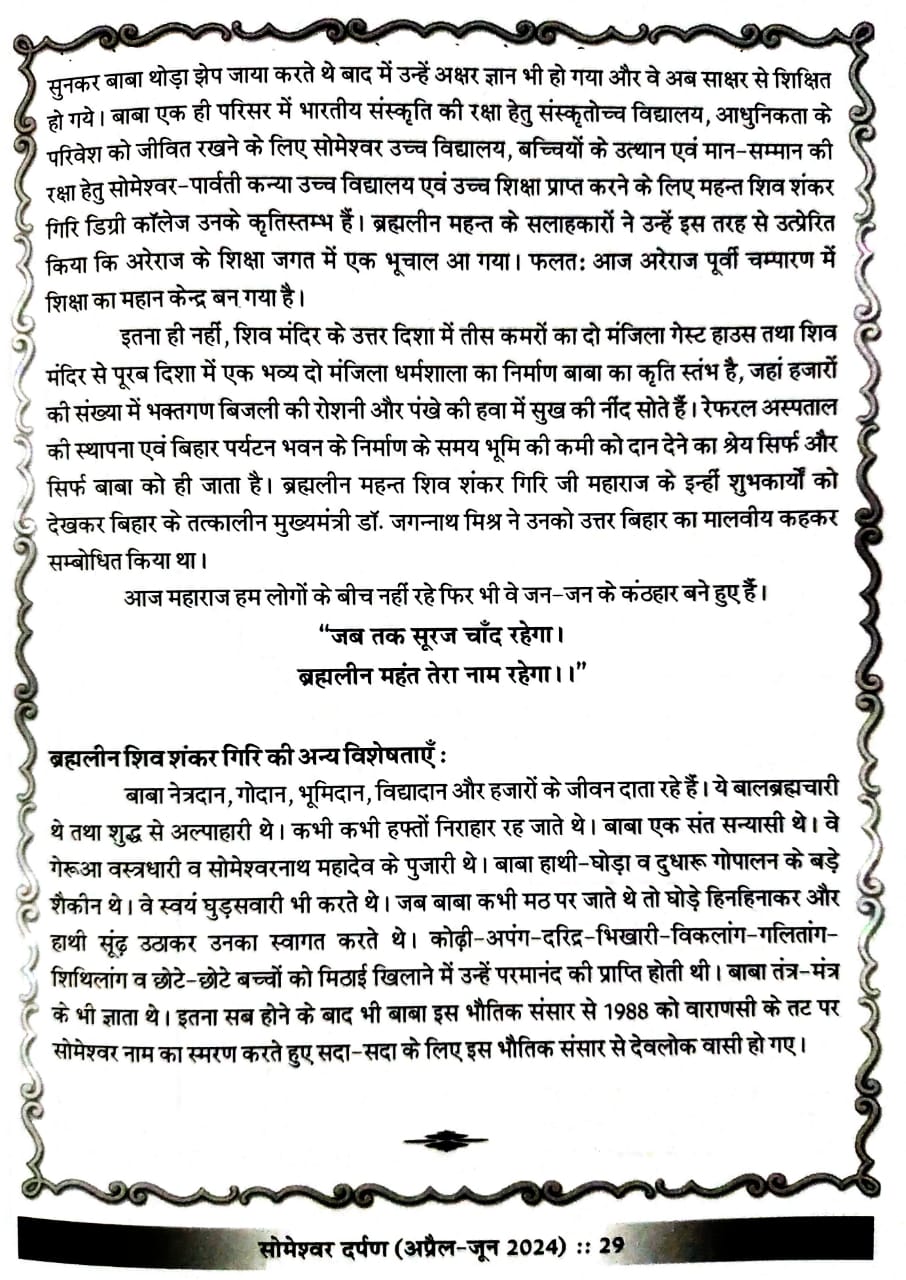 सुनकर बाबा थोड़ा झेप जाया करते थे बाद में उन्हें अक्षर ज्ञान भी हो गया और वे अब साक्षर से शिक्षित
हो गये। बाबा एक ही परिसर में भारतीय संस्कृति की रक्षा हेतु संस्कृतोच्च विद्यालय, आधुनिकता के
परिवेश को जीवित रखने के लिए सोमेश्वर उच्च विद्यालय, बच्चियों के उत्थान एवं मान-सम्मान की
रक्षा हेतु सोमेश्वर-पार्वती कन्या उच्च विद्यालय एवं उच्च शिक्षा प्राप्त करने के लिए महन्त शिव शंकर
गिरि डिग्री कॉलेज उनके कृतिस्तम्भ हैं। ब्रह्मलीन महन्त के सलाहकारों ने उन्हें इस तरह से उत्प्रेरित
किया कि अरेराज के शिक्षा जगत में एक भूचाल आ गया। फलतः आज अरेराज पूर्वी चम्पारण में
शिक्षा का महान केन्द्र बन गया है।
इतना ही नहीं, शिव मंदिर के उत्तर दिशा में तीस कमरों का दो मंजिला गेस्ट हाउस तथा शिव
मंदिर से पूरब दिशा में एक भव्य दो मंजिला धर्मशाला का निर्माण बाबा का कृति स्तंभ है, जहां हजारों
की संख्या में भक्तगण बिजली की रोशनी और पंखे की हवा में सुख की नींद सोते हैं। रेफरल अस्पताल
की स्थापना एवं बिहार पर्यटन भवन के निर्माण के समय भूमि की कमी को दान देने का श्रेय सिर्फ और
सिर्फ बाबा को ही जाता है। ब्रह्मलीन महन्त शिव शंकर गिरि जी महाराज के इन्हीं शुभकार्यों को
देखकर बिहार के तत्कालीन मुख्यमंत्री डॉ. जगन्नाथ मिश्र ने उनको उत्तर बिहार का मालवीय कहकर
सम्बोधित किया था।
आज महाराज हम लोगों के बीच नहीं रहे फिर भी वे जन-जन के कंठहार बने हुए हैं।
“जब तक सूरज चाँद रहेगा।
ब्रह्मलीन महंत तेरा नाम रहेगा।।”
ब्रह्मलीन शिव शंकर गिरि की अन्य विशेषताएँ :
बाबा नेत्रदान, गोदान, भूमिदान, विद्यादान और हजारों के जीवन दाता रहे हैं। ये बालब्रह्मचारी
थे तथा शुद्ध से अल्पाहारी थे। कभी कभी हफ्तों निराहार रह जाते थे। बाबा एक संत सन्यासी थे। वे
गेरूआ वस्त्रधारी व सोमेश्वरनाथ महादेव के पुजारी थे। बाबा हाथी-घोड़ा व दुधारू गोपालन के बड़े
शैकीन थे। वे स्वयं घुड़सवारी भी करते थे। जब बाबा कभी मठ पर जाते थे तो घोड़े हिनहिनाकर और
हाथी सूंढ़ उठाकर उनका स्वागत करते थे। कोढ़ी-अपंग-दरिद्र-भिखारी-विकलांग-गलितांग-
शिथिलांग व छोटे-छोटे बच्चों को मिठाई खिलाने में उन्हें परमानंद की प्राप्ति होती थी। बाबा तंत्र-मंत्र
के भी ज्ञाता थे। इतना सब होने के बाद भी बाबा इस भौतिक संसार से 1988 को वाराणसी के तट पर
सोमेश्वर नाम का स्मरण करते हुए सदा-सदा के लिए इस भौतिक संसार से देवलोक वासी हो गए।
सोमेश्वर दर्पण (अप्रैल-जून 2024) :: 29